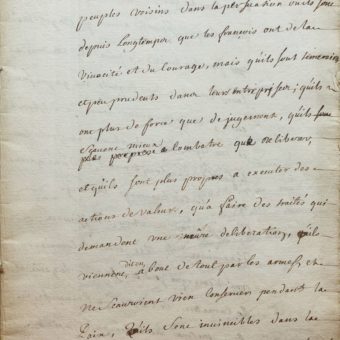 peuples voisins dans la persuasion où ils sont
depuis longtemps que les françois ont de la
vivacité et du courage, mais qu'ils sont temeraires
et peu prudents dans leurs entreprises; qu'ils
ont plus de force que de jugement, qu'ils
scavent mieux combattre que deliberer,
et qu'ils sont plus propres a executer des
actions de valeur, qu'a faire des traités qui
demandent une meure deliberation, qu'ils
viennent bien a bout de tout par les armes, et
ne scauroient rien conserver pendant la
paix, qu'ils sont invincibles dans la